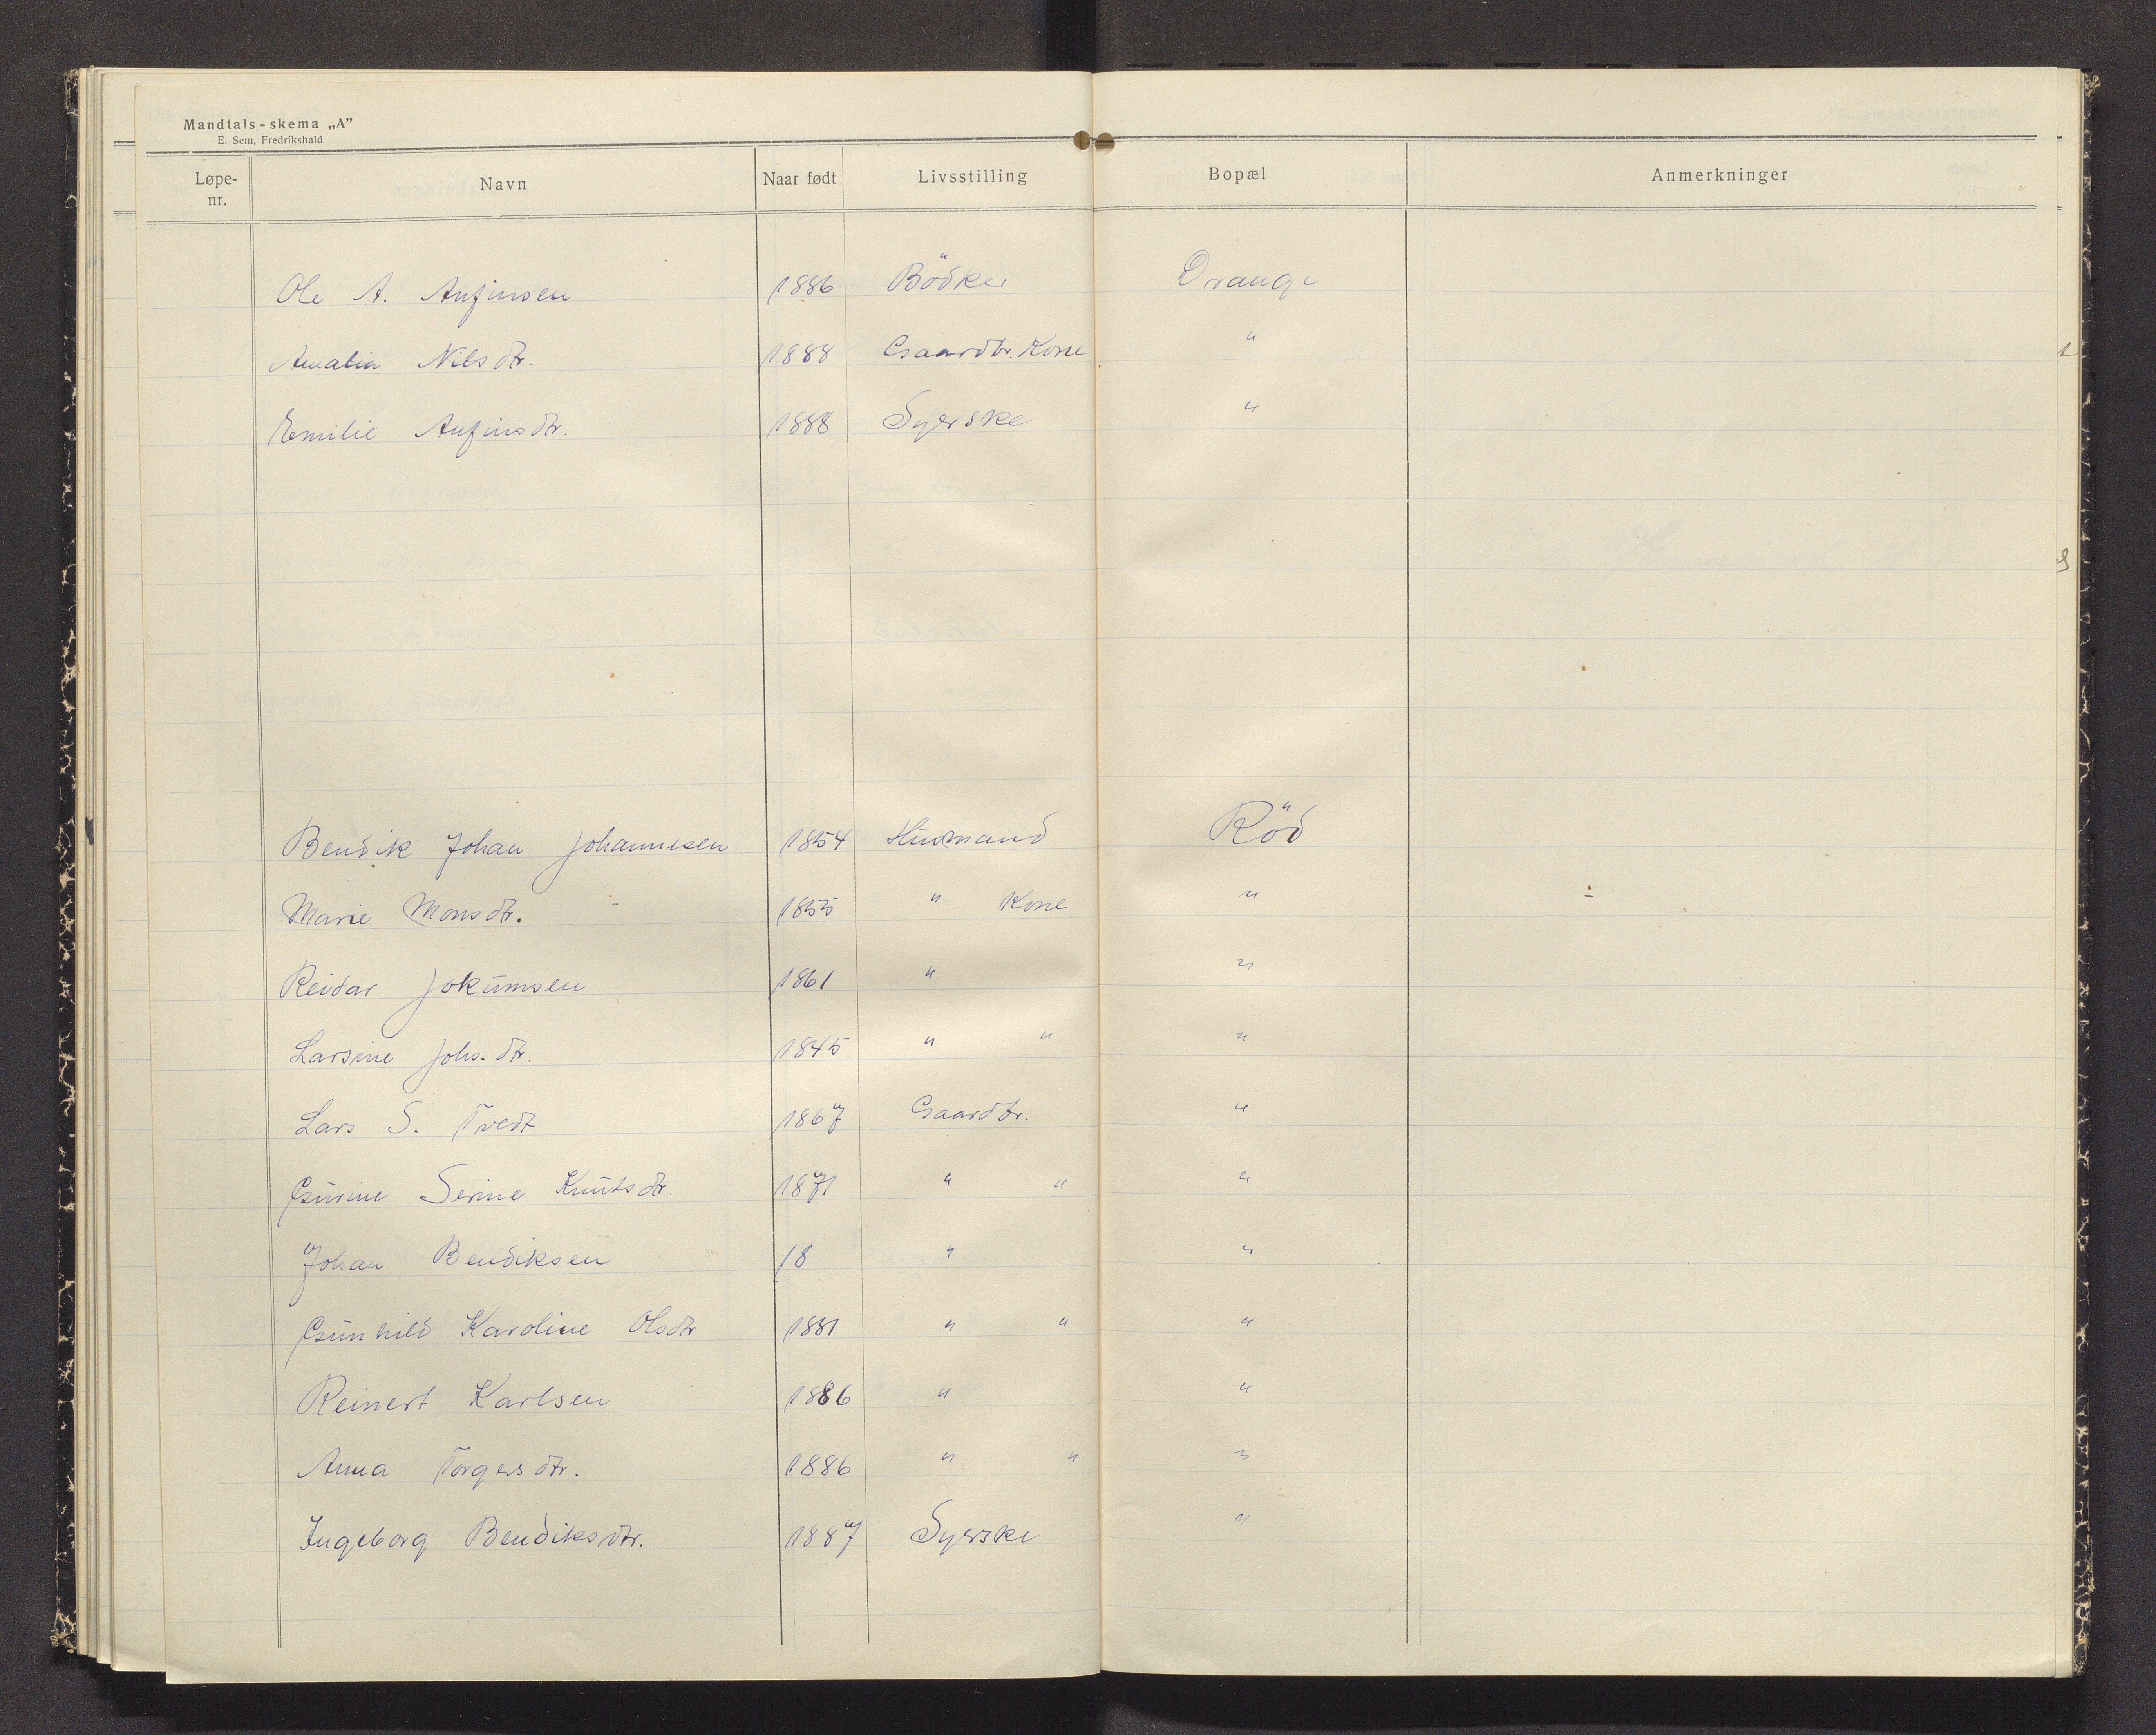 Mandtals-skema „A”
E. Sem, Fredrikshald
Løpe-nr. Navn Naar født Livsstilling Bopæl Anmerkninger
Ole A. Anfinsen 1886 Bödker Drange
Amalia Nilsdtr. 1888 Gaardbr. Kone "
Emilie Anfinsdtr. 1888 Syerske "
Bendik Johan Johannesen 1854 Husmand Röd
Marie Monsdtr. 1855 " Kone "
Reidar Jokumsen 1861 " "
Larsine Johs. dtr. 1845 " " "
Lars S. Tvedt 1867 Gaardbr. "
Gurine Serine Knutsdtr. 1871 " " "
Johan Bendiksen 18 " "
Gunhild Karoline Olsdtr 1881 " " "
Reinert Karlsen 1886 " "
Anna Torgersdtr. 1886 " " "
Ingeborg Bendiksdtr. 1887 Syerske "